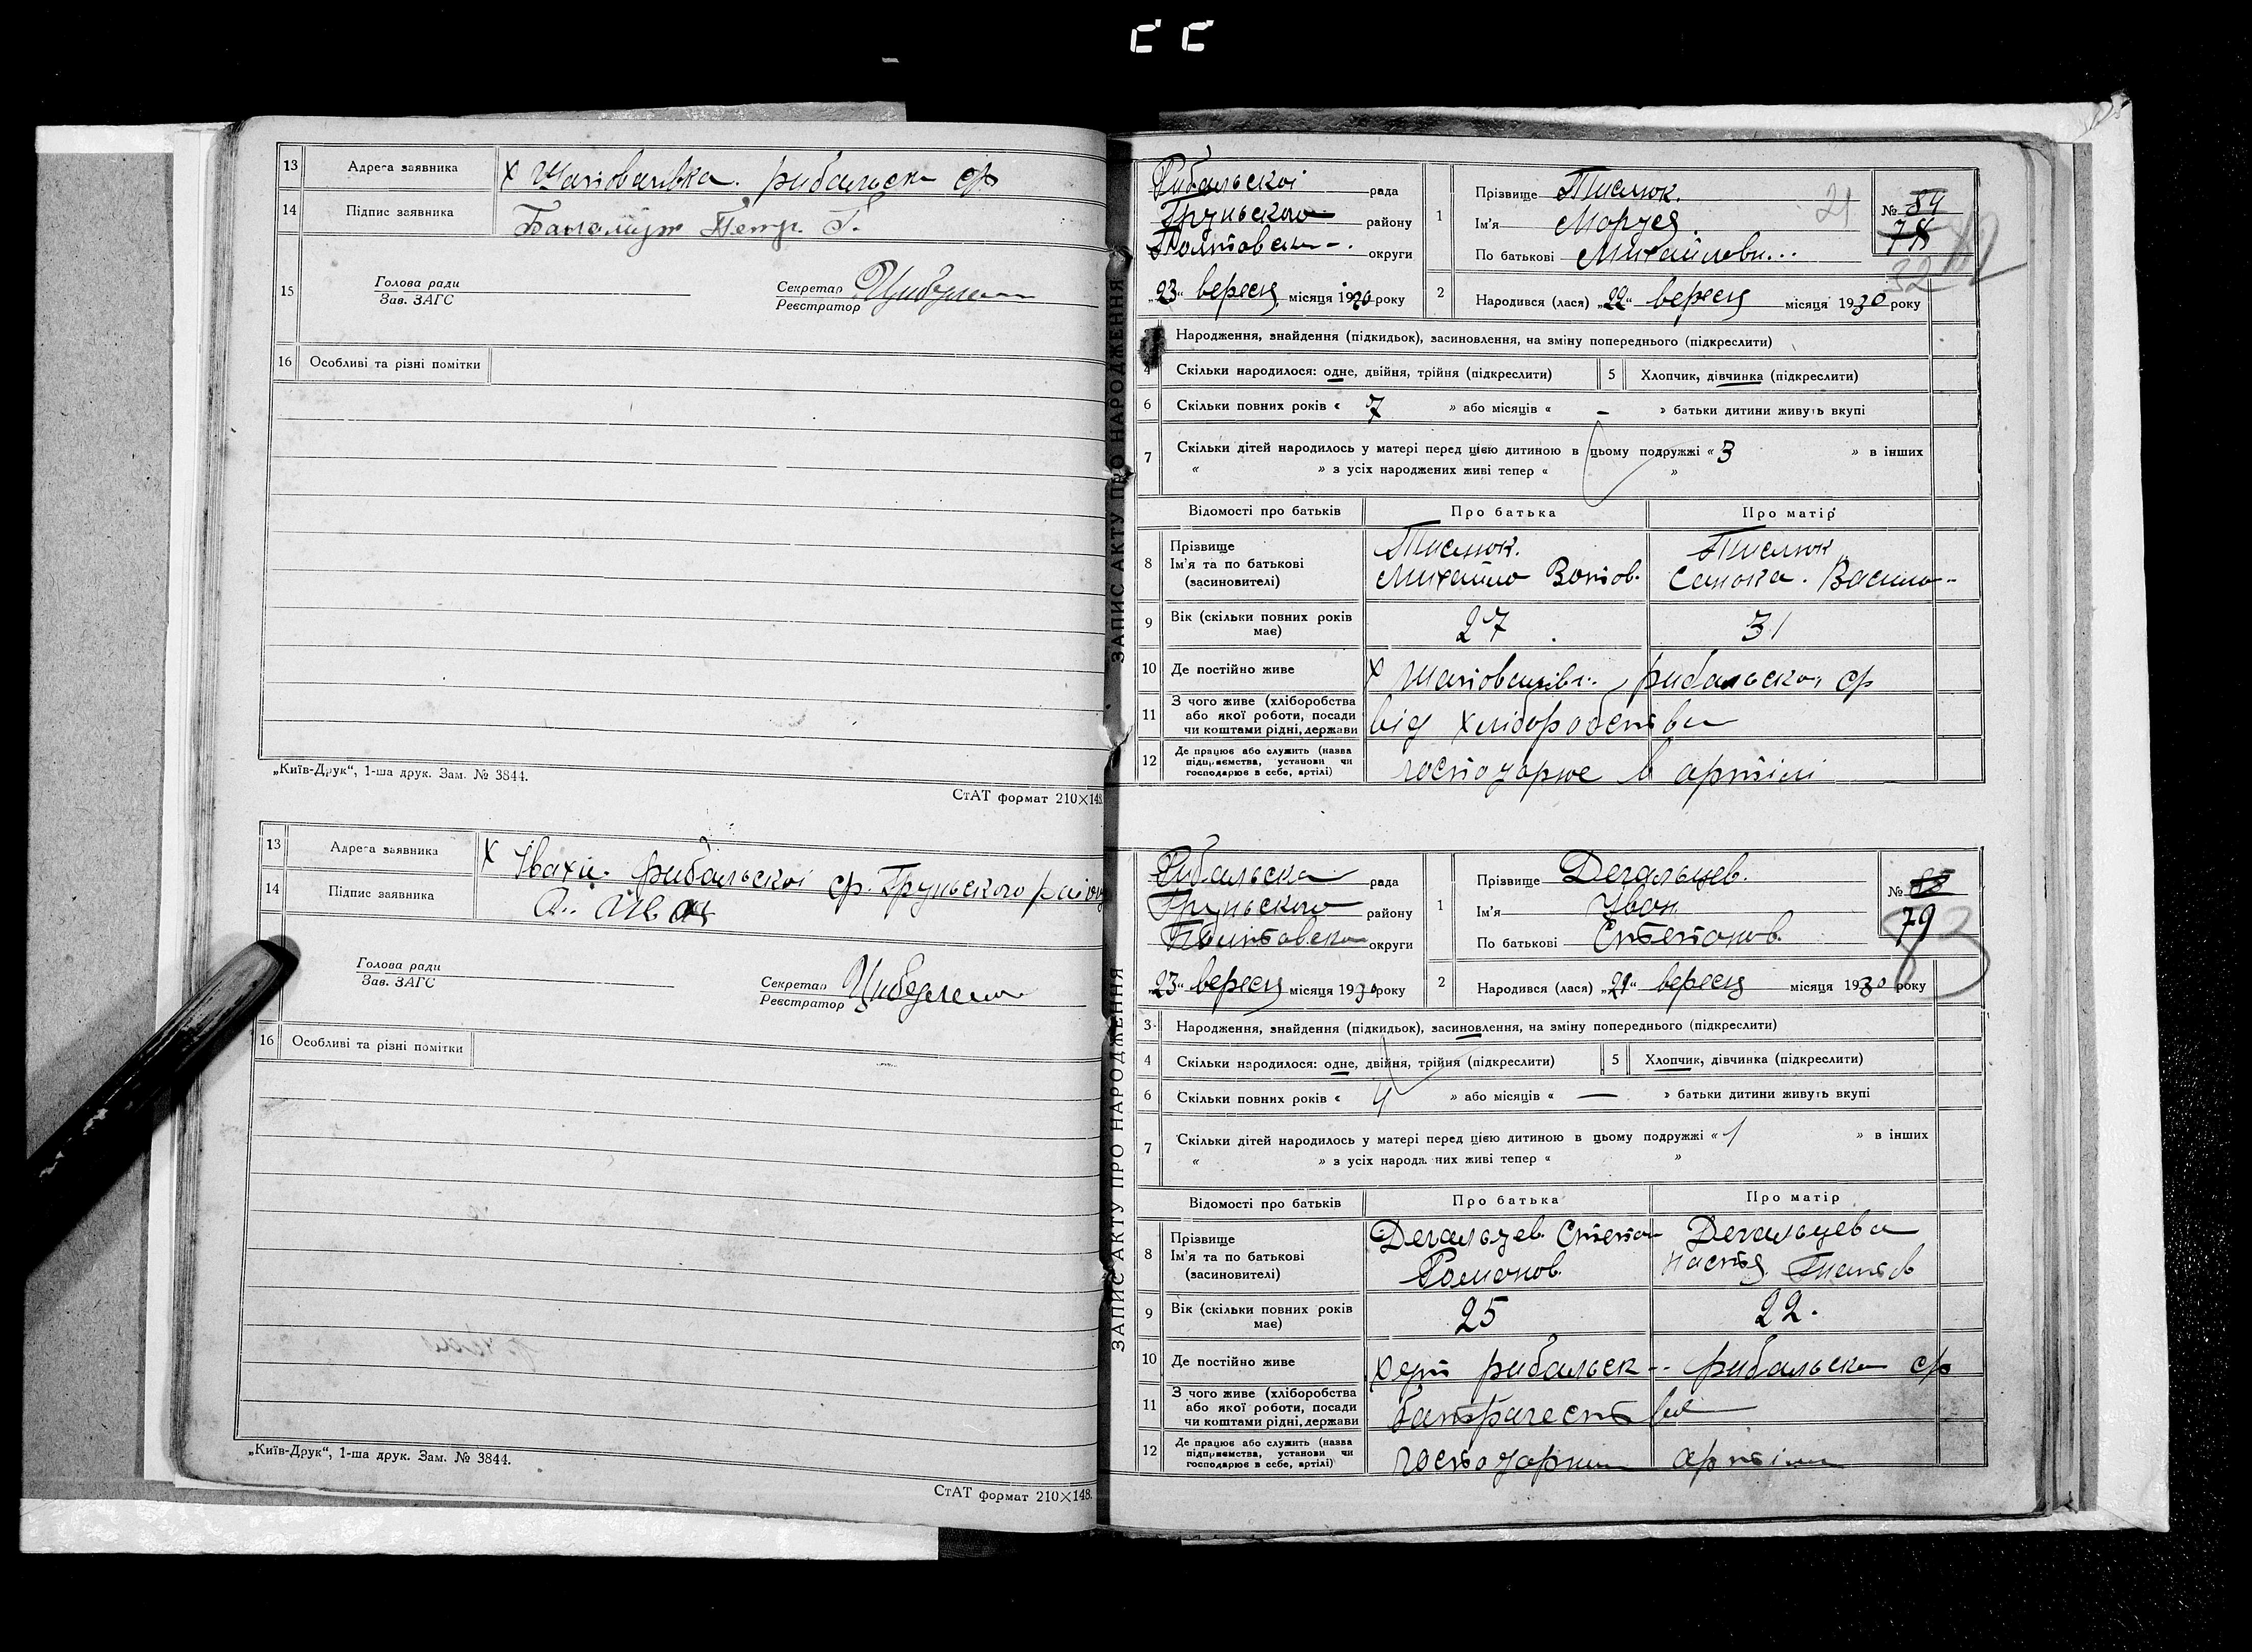 13 Адреса заявника х Шаповалівка. рибальськ ср
14 Підпис заявника Петр. Г.
15 Голова ради
Зав. ЗАГС
Секретар
Реєстратор
16 Особливі та різні помітки
„Київ-Друк“, 1-ша друк. Зам. № 3844.
СтАТ формат 210×148.
13 Адреса заявника х рибальскоі ср. Груньского району
14 Підпис заявника
Голова ради
Зав. ЗАГС
Секретар
Реєстратор
16 Особливі та різні помітки
„Київ-Друк“, 1-ша друк. Зам. № 3844.
СтАТ формат 210×148.
ЗАПИС АКТУ ПРО НАРОДЖЕННЯ
Рибальскоі рада
Груньского району
Полтавськ округи
„23“ вересц місяця 1930 року
1 Прізвище Тислюк.
Ім'я Маруся.
По батькові Михайловн...
21
№ 84
78
32
2 Народився (лася) „22“ вересц місяця 1930 року
Народження, знайдення (підкидьок), засиновлення, на зміну попереднього (підкреслити)
4 Скільки народилося: одне, двійня, трійня (підкреслити) 5 Хлопчик, дівчинка (підкреслити)
6 Скільки повних років « 7 » або місяців « – » батьки дитини живуть вкупі
7 Скільки дітей народилось у матері перед цією дитиною в цьому подружжі « 3 » в інших
« » з усіх народжених живі тепер « »
Відомості про батьків Про батька Про матір
8 Прізвище
Ім'я та по батькові
(засновителі)
Тислюк.
Михайло
Тислюк
9 Вік (скільки повних років має) 27 31
10 Де постійно живе х Шаповалівк рибальско, ср
11 З чого живе (хліборобства або якої роботи, посади чи коштами рідні, держави від хліборобства
12 Де працює або служить (назва підприємства, установи чи господарює в себе, артілі) господарює в артілі
ЗАПИС АКТУ ПРО НАРОДЖЕННЯ
Рибальска рада
Груньского району
Полтавска округи
„23“ вересц місяця 1930 року
1 Прізвище Дегальцев.
Ім'я Іван.
По батькові Степанов.
№ 88
79
83
2 Народився (лася) „21“ вересц місяця 1930 року
3 Народження, знайдення (підкидьок), засиновлення, на зміну попереднього (підкреслити)
4 Скільки народилося: одне, двійня, трійня (підкреслити) 5 Хлопчик, дівчинка (підкреслити)
6 Скільки повних років « 4 » або місяців « — » батьки дитини живуть вкупі
7 Скільки дітей народилось у матері перед цією дитиною в цьому подружжі « 1 » в інших
« » з усіх народжених живі тепер « »
Відомості про батьків Про батька Про матір
8 Прізвище
Ім'я та по батькові
(засновителі)
Дегальцев Степа
Романов.
Дегальцева
Настя
9 Вік (скільки повних років має) 25 22.
10 Де постійно живе хут рибальск-- рибальска ср
11 З чого живе (хліборобства або якої роботи, посади чи коштами рідні, держави батрачества
12 Де працює або служить (назва підприємства, установи чи господарює в себе, артілі)